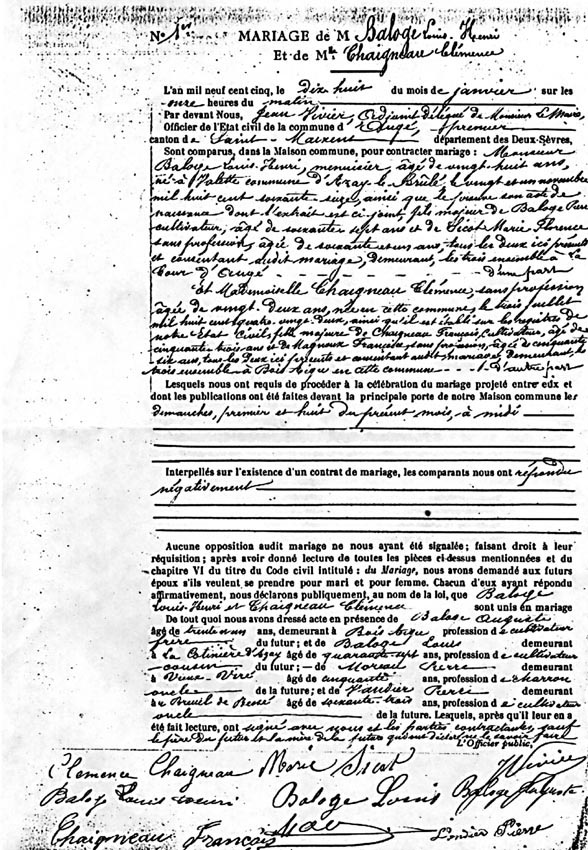 No 1er MARIAGE de M Baloge Louis-Henri
Et de Mlle Chaigneau Clémence
L'an mil neuf cent cinq, le dix huit du mois de janvier sur les
onze heures du matin
Par devant Nous, Jean Vivier, Adjoint délégué de Monsieur le Maire,
Officier de l'Etat civil de la commune d'Augé, premier
canton de Saint-Maixent département des Deux-Sèvres,
Sont comparus, dans la Maison commune, pour contracter mariage : Monsieur
Baloge Louis-Henri, menuisier, âgé de vingt-huit ans,
né à Valette commune d'Azay le Brûlé le vingt et un novembre
mil huit cent soixante seize, ainsi que le prouve son acte de
naissance dont l'extrait est ci-joint, fils majeur de Baloge Pierre
cultivateur, âgé de soixante sept ans et de Sicot Marie Florence
sans profession, âgée de soixante et un ans, tous les deux ici présents
et consentant audit mariage, demeurant, les trois ensemble à La
Cour d'Augé d'une part
Et Mademoiselle Chaigneau Clémence, sans profession
âgée de vingt-deux ans, née en cette commune, le trois juillet
mil huit cent quatre-vingt-deux, ainsi qu'il est établi sur les registres de
notre Etat-Civil, fille majeure de Chaigneau François, cultivateur, âgé de
cinquante trois ans et de Magnoux Françoise, sans profession, âgée de cinquante
six ans, tous les deux ici présents et consentant audit mariage, demeurant, les
trois ensemble à Bois Aigu en cette commune d'autre part
Lesquels nous ont requis de procéder à la célébration du mariage projeté entre eux et
dont les publications ont été faites devant la principale porte de notre Maison commune les
dimanches, premier et huit du présent mois, à midi
Interpellés sur l'existence d'un contrat de mariage, les comparants nous ont répondu
négativement
Aucune opposition audit mariage ne nous ayant été signalée; faisant droit à leur
réquisition; après avoir donné lecture de toutes les pièces ci-dessus mentionnées et du
chapitre VI du titre du Code civil intitulé : du Mariage, nous avons demandé aux futurs
époux s'ils veulent se prendre pour mari et pour femme. Chacun d'eux ayant répondu
affirmativement, nous déclarons publiquement, au nom de la loi, que Baloge
Louis-Henri et Chaigneau Clémence sont unis en mariage
De tout quoi nous avons dressé acte en présence de Baloge Auguste
âgé de trente ans, demeurant à Bois Aigu, profession de cultivateur
frère du futur; et de Baloge Louis demeurant
à La d'Azay âgé de quarante sept ans, profession de cultivateur
cousin du futur; — de Moreau Pierre demeurant
à Viré âgé de cinquante ans, profession de charron
oncle de la future; et de Pierre demeurant
à Breuil de âgé de soixante-trois ans, profession de cultivateur
oncle de la future. Lesquels, après qu'il leur en a
été fait lecture, ont signé avec nous et les parties contractantes, sauf
le père du futur et la mère de la future qui ont déclaré ne le savoir faire
L'Officier public,
Clemence Chaigneau Marie Sicot JVivier
Baloge Louis Henri Baloge Louis Baloge Auguste
Chaigneau François Pierre